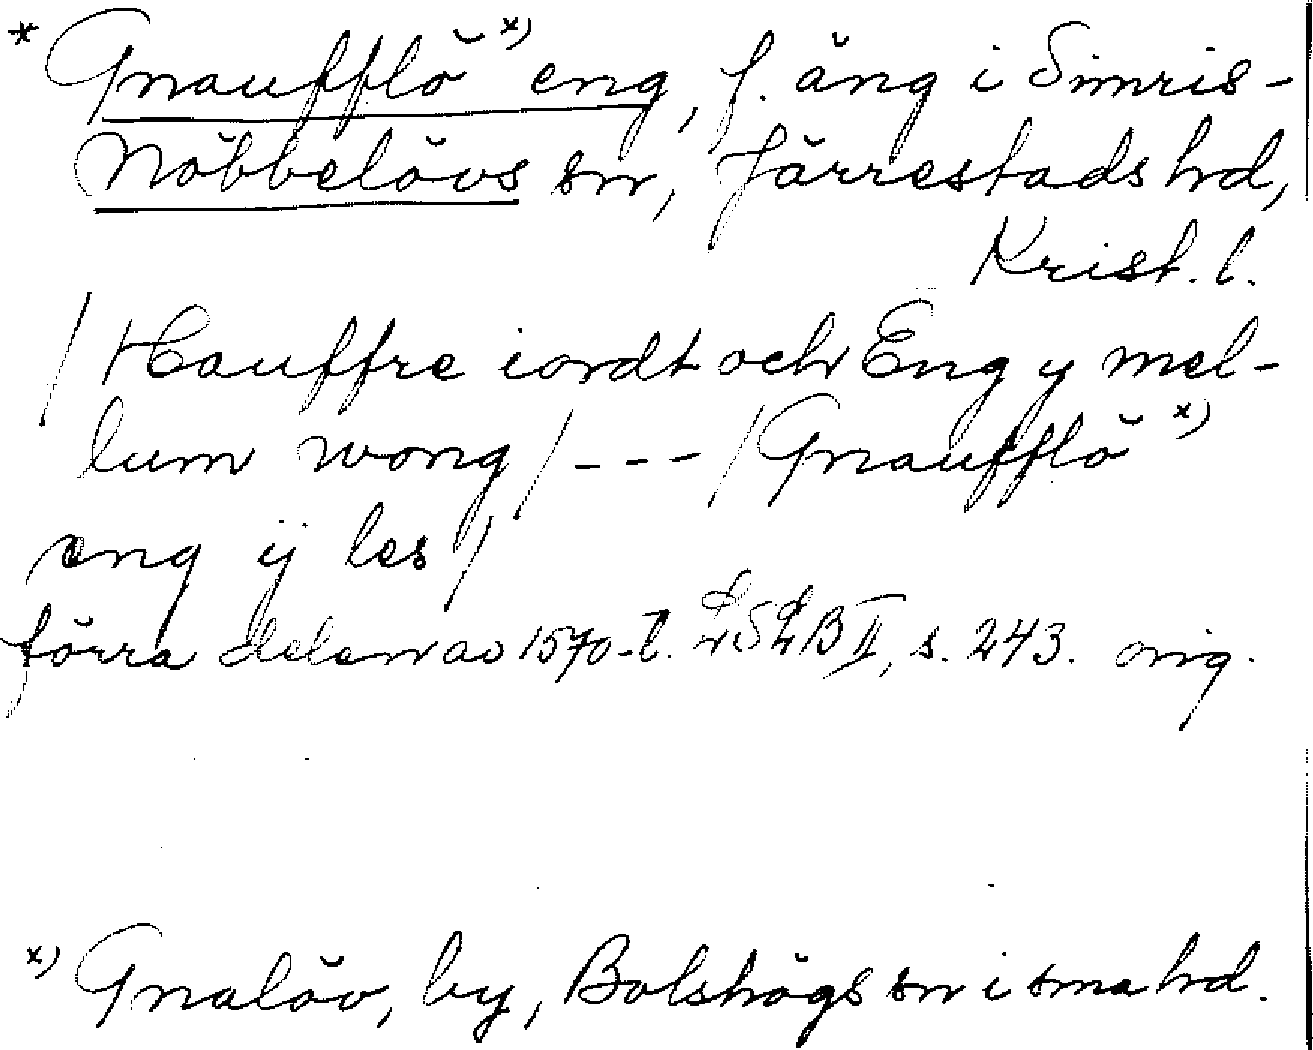 * Gnaufflö x) eng, f. äng i Simris-
Nöbbelövs sn, Järrestads hd,
Krist. l.
/ Hauffre iordt och Eng y mel-
lum wong / --- / Gnaufflö x)
eng ij les /
förra delen av 1570-t. LSLB II, s. 243. orig.
x) Gnalöv, by, Bolshögs sn i sma hd.